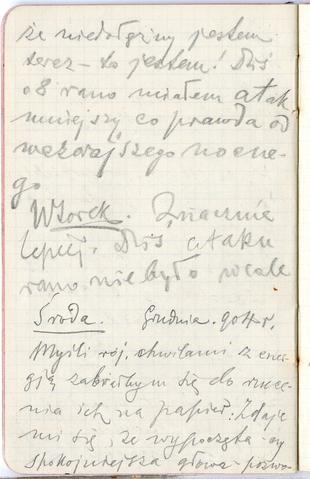 że niedołężny jestem
teraz – to jestem! Dziś
o 8 rano miałem atak
mniejszy co prawda od
wczorajszego nocne-
go
Wtorek. Znacznie
lepiej. Dziś ataku
rano nie było wcale
Środa. Grudnia. 904 r.
Myśli rój, chwilami z ener-
gią zabrałbym się do rzuce-
nia ich na papier. Zdaje
mi się, że wypoczęta
spokojniejsza głowa pozwo-